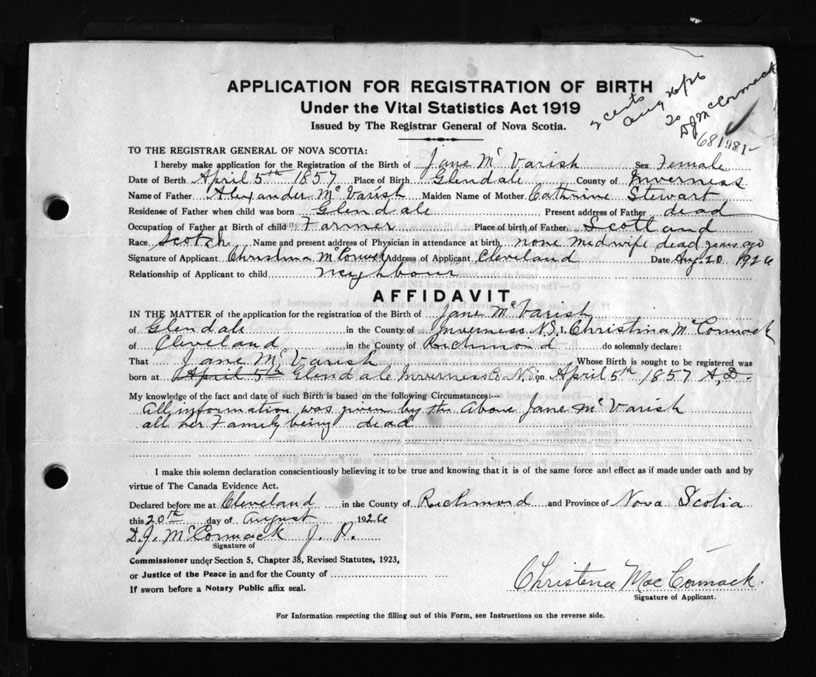 APPLICATION FOR REGISTRATION OF BIRTH
Under the Vital Statistics Act 1919
Issued by The Registrar General of Nova Scotia.
2 cents
Aug 26/26
to
D J McCormack
681981-
TO THE REGISTRAR GENERAL OF NOVA SCOTIA:
I hereby make application for the Registration of the Birth of Jane Mc Varish Sex Female
Date of Birth April 5th 1857 Place of Birth Glendale County of Inverness
Name of Father Alexander Mc Varish Maiden Name of Mother Cathrine Stewart
Residence of Father when child was born Glendale Present address of Father dead
Occupation of Father at Birth of child Farmer Place of birth of Father Scotland
Race Scotch Name and present address of Physician in attendance at birth none midwife dead years ago
Signature of Applicant Christina McCormack Address of Applicant Cleveland Date Aug. 20 1926
Relationship of Applicant to child neighbour
AFFIDAVIT
IN THE MATTER of the application for the registration of the Birth of Jane Mc Varish
of Glendale in the County of Inverness N.S. I, Christina McCormack
of Cleveland in the County of Richmond do solemnly declare:
That Jane Mc Varish Whose Birth is sought to be registered was
born at April 5th Glendale Inverness Co. N.S. on April 5th 1857 A.D.
My knowledge of the fact and date of such Birth is based on the following Circumstances:—
All information was given by the Above Jane Mc Varish
all her Family being dead
I make this solemn declaration conscientiously believing it to be true and knowing that it is of the same force and effect as if made under oath and by
virtue of The Canada Evidence Act.
Declared before me at Cleveland in the County of Richmond and Province of Nova Scotia
this 20th day of August 1926
D.J. McCormack J. P.
Signature of
Commissioner under Section 5, Chapter 38, Revised Statutes, 1923,
or Justice of the Peace in and for the County of
If sworn before a Notary Public affix seal.
Christence MacCormack.
Signature of Applicant.
For Information respecting the filling out of this Form, see Instructions on the reverse side.